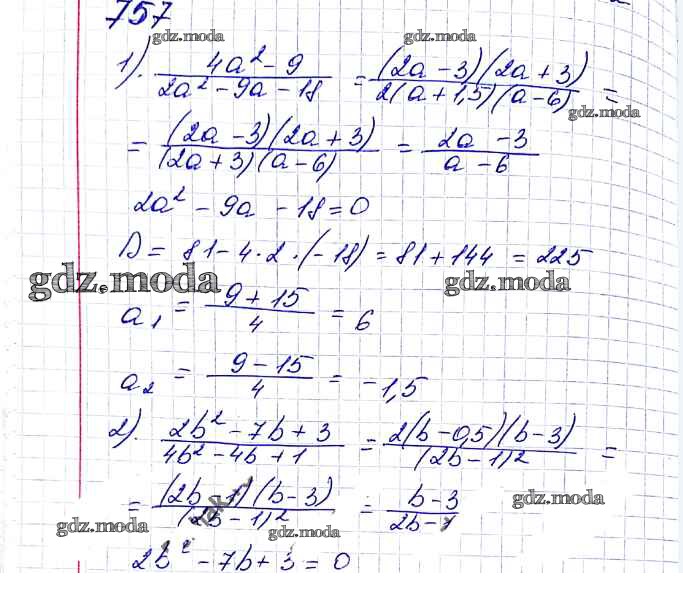 757
gdz.moda gdz.moda
1). (4a² - 9)/(2a² - 9a - 18) = ((2a - 3)(2a + 3))/(2(a + 1,5)(a - 6)) =
gdz.moda
= ((2a - 3)(2a + 3))/((2a + 3)(a - 6)) = (2a - 3)/(a - 6)
2a² - 9a - 18 = 0
D = 81 - 4·2·(-18) = 81 + 144 = 225
gdz.moda gdz.moda
a₁ = (9 + 15)/4 = 6
a₂ = (9 - 15)/4 = -1,5
2). (2b² - 7b + 3)/(4b² - 4b + 1) = (2(b - 0,5)(b - 3))/((2b - 1)²) =
= ((2b - 1)(b - 3))/((2b - 1)²) = (b - 3)/(2b - 1)
gdz.moda gdz.moda gdz.moda
2b² - 7b + 3 = 0